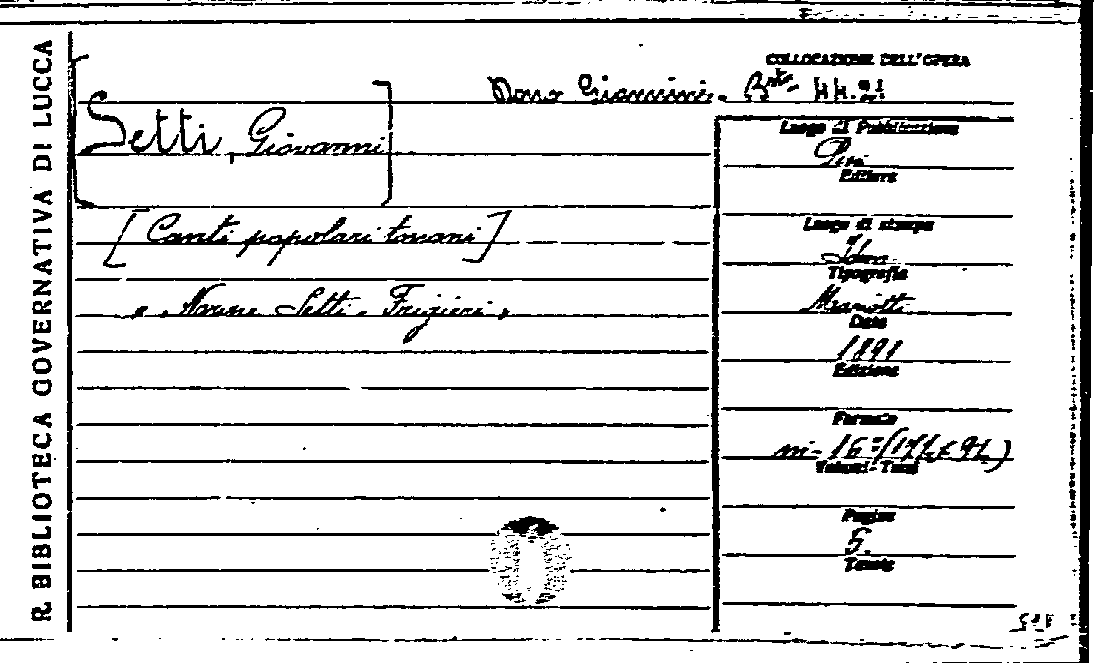 R. BIBLIOTECA GOVERNATIVA DI LUCCA
COLLOCAZIONE DELL'OPERA
Dono Giannini. Bta. 44.
[Setti, Giovanni]
[Canti popolari toscani]
". Nozze Setti - Frigieri.
Luogo di Pubblicazione
Pisa
Editore
Luogo di stampa
Idem
Tipografia
Mariotti
Data
1891
Edizione
Formato
in-16º (17½ x 9½)
Volumi-Tomi
Pagine
5.
Tavole